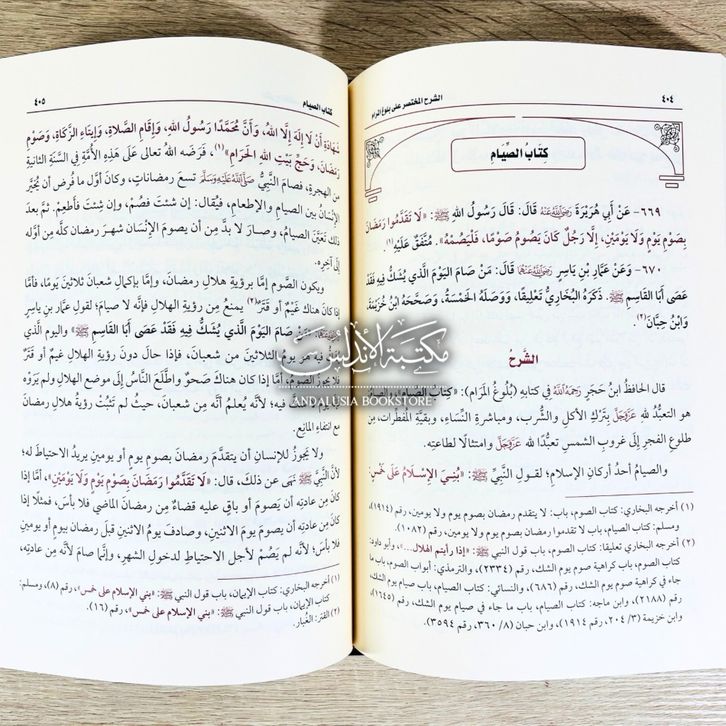 ٤٠٤
الشرح المختصر على بلوغ المرام
كِتَابُ الصِّيَامِ
٦٦٩- عَنْ أَبِي هُرَيْرَةَ رَضِيَ اللَّهُ عَنْهُ قَالَ: قَالَ رَسُولُ اللهِ ﷺ: «لَا تَقَدَّمُوا رَمَضَانَ
بِصَوْمِ يَوْمٍ وَلَا يَوْمَيْنِ، إِلَّا رَجُلٌ كَانَ يَصُومُ صَوْمًا، فَلْيَصُمْهُ». مُتَّفَقٌ عَلَيْهِ(١).
٦٧٠- وَعَنْ عَمَّارِ بْنِ يَاسِرٍ رَضِيَ اللَّهُ عَنْهُ قَالَ: مَنْ صَامَ الْيَوْمَ الَّذِي يُشَكُّ فِيهِ فَقَدْ
عَصَى أَبَا القَاسِمِ ﷺ. ذَكَرَهُ البُخَارِيُّ تَعْلِيقًا، وَوَصَلَهُ الْخَمْسَةُ، وَصَحَّحَهُ ابْنُ خُزَيْمَةَ،
وَابْنُ حِبَّانَ(٢).
الشَّرْحُ
قال الحافظُ ابنُ حَجَرٍ رَحِمَهُ اللَّهُ في كتابِهِ (بُلُوغُ المَرَامِ): «كِتَابُ الصِّيَامِ»
هو التعبُّدُ للهِ عَزَّوَجَلَّ بِتَرْكِ الأكلِ والشُّربِ، ومباشرةِ النِّسَاءِ، وبقيَّةِ المُفطِّراتِ، مِن
طلوعِ الفجرِ إلى غروبِ الشمسِ تعبُّدًا للهِ عَزَّوَجَلَّ وامتثالًا لطاعتِهِ.
والصيامُ أحدُ أركانِ الإسلامِ؛ لقولِ النَّبيِّ ﷺ: «بُنِيَ الإِسْلَامُ عَلَى خَمْسٍ:
(١) أخرجه البخاري: كتاب الصوم، باب: لا يتقدم رمضان بصوم يوم ولا يومين، رقم (١٩١٤)،
ومسلم: كتاب الصيام، باب لا تقدموا رمضان بصوم يوم ولا يومين، رقم (١٠٨٢).
(٢) أخرجه البخاري تعليقا: كتاب الصوم، باب قول النبي ﷺ: «إذا رأيتم الهلال...»، وأبو داود:
كتاب الصوم، باب كراهية صوم يوم الشك، رقم (٢٣٣٤)، والترمذي: أبواب الصوم، باب ما
جاء في كراهية صوم يوم الشك، رقم (٦٨٦)، والنسائي: كتاب الصيام، باب صيام يوم الشك،
رقم (٢١٨٨)، وابن ماجه: كتاب الصيام، باب ما جاء في صيام يوم الشك، رقم (١٦٤٥)،
وابن خزيمة (٣/ ٢٠٤، رقم ١٩١٤)، وابن حبان (٨/ ٣٦٠، رقم ٣٥٩٤).
كتاب الصيام
٤٠٥
شَهَادَةِ أَنْ لَا إِلَهَ إِلَّا اللهُ، وَأَنَّ مُحَمَّدًا رَسُولُ اللهِ، وَإِقَامِ الصَّلَاةِ، وَإِيتَاءِ الزَّكَاةِ، وَصَوْمِ
رَمَضَانَ، وَحَجِّ بَيْتِ اللهِ الْحَرَامِ»(١)، فَرَضَه اللهُ تعالى عَلَى هَذِهِ الأُمَّةِ فِي السَّنَةِ الثانيةِ
من الهجرةِ، فصامَ النَّبِيُّ صَلَّى اللَّهُ عَلَيْهِ وَسَلَّمَ تسعَ رمضاناتٍ، وكانَ أوَّلَ ما فُرِضَ أن يُخَيَّرَ
الإنسانُ بين الصيامِ والإطعامِ، فيُقالُ: إن شئتَ فصُمْ، وإن شِئتَ فأطعِمْ. ثمَّ بعدَ
ذلك تَعَيَّنَ الصيامُ، وصارَ لا بدَّ مِن أن يصومَ الإنسانُ شهرَ رمضانَ كلَّه مِن أوَّلِه
إلى آخِرِه.
ويكون الصَّومُ إمَّا برؤيةِ هلالِ رمضانَ، وإمَّا بإكمالِ شعبانَ ثلاثينَ يومًا، فأمَّا
إذا كانَ هناك غَيْمٌ أو قَتَرٌ(٢) يمنعُ مِن رؤيةِ الهلالِ فإنَّه لا صيامَ؛ لقولِ عمَّارِ بنِ ياسرٍ
«مَنْ صَامَ اليَوْمَ الَّذِي يُشَكُّ فِيهِ فَقَدْ عَصَى أَبَا القَاسِمِ ﷺ» واليوم الَّذي
يُشَكُّ فيه هو يومُ الثلاثينَ من شعبانَ، فإذا حالَ دونَ رؤيةِ الهلالِ غيمٌ أو قَتَرٌ
فلا يجوزُ الصومُ، أمَّا إذا كان هناك صَحوٌ واطَّلَعَ النَّاسُ إلى موضعِ الهلالِ ولم يَرَوْه
فلا يومَ شكٍّ فيه؛ لأنَّه يُعلَمُ أنَّه مِن شعبانَ، حيثُ لم تَثبُتْ رؤيةُ هلالِ رمضانَ
مع انتفاءِ المانِعِ.
ولا يجوزُ للإنسانِ أن يتقدَّمَ رمضانَ بصومِ يومٍ أو يومينِ يريدُ الاحتياطَ له؛
لأنَّ النَّبيَّ ﷺ نهى عن ذلك، قال: «لَا تَقَدَّمُوا رَمَضَانَ بِصَوْمِ يَوْمٍ وَلَا يَوْمَيْنِ»، أمَّا إذا
كان مِن عادتِهِ أن يَصومَ أو باقٍ عليه قضاءٌ مِن رمضانَ الماضي فلا بأسَ، فمثلًا إذا
كانَ مِن عادتِهِ أن يصومَ يومَ الاثنينِ، وصادفَ يومُ الاثنينِ قبلَ رمضانَ بيومٍ أو يومينِ
فلا بأسَ؛ لأنَّه لم يَصُمْ لأجلِ الاحتياطِ لدخولِ الشهرِ، وإنَّما صامَ لأنَّه مِن عادتِهِ،
(١) أخرجه البخاري: كتاب الإيمان، باب قول النبي ﷺ: «بني الإسلام على خمس»، رقم (٨)، ومسلم:
كتاب الإيمان، باب قول النبي ﷺ: «بني الإسلام على خمس»، رقم (١٦).
(٢) القتر: الغُبار.
مكتبة الأندلس
ANDALUSIA BOOKSTORE